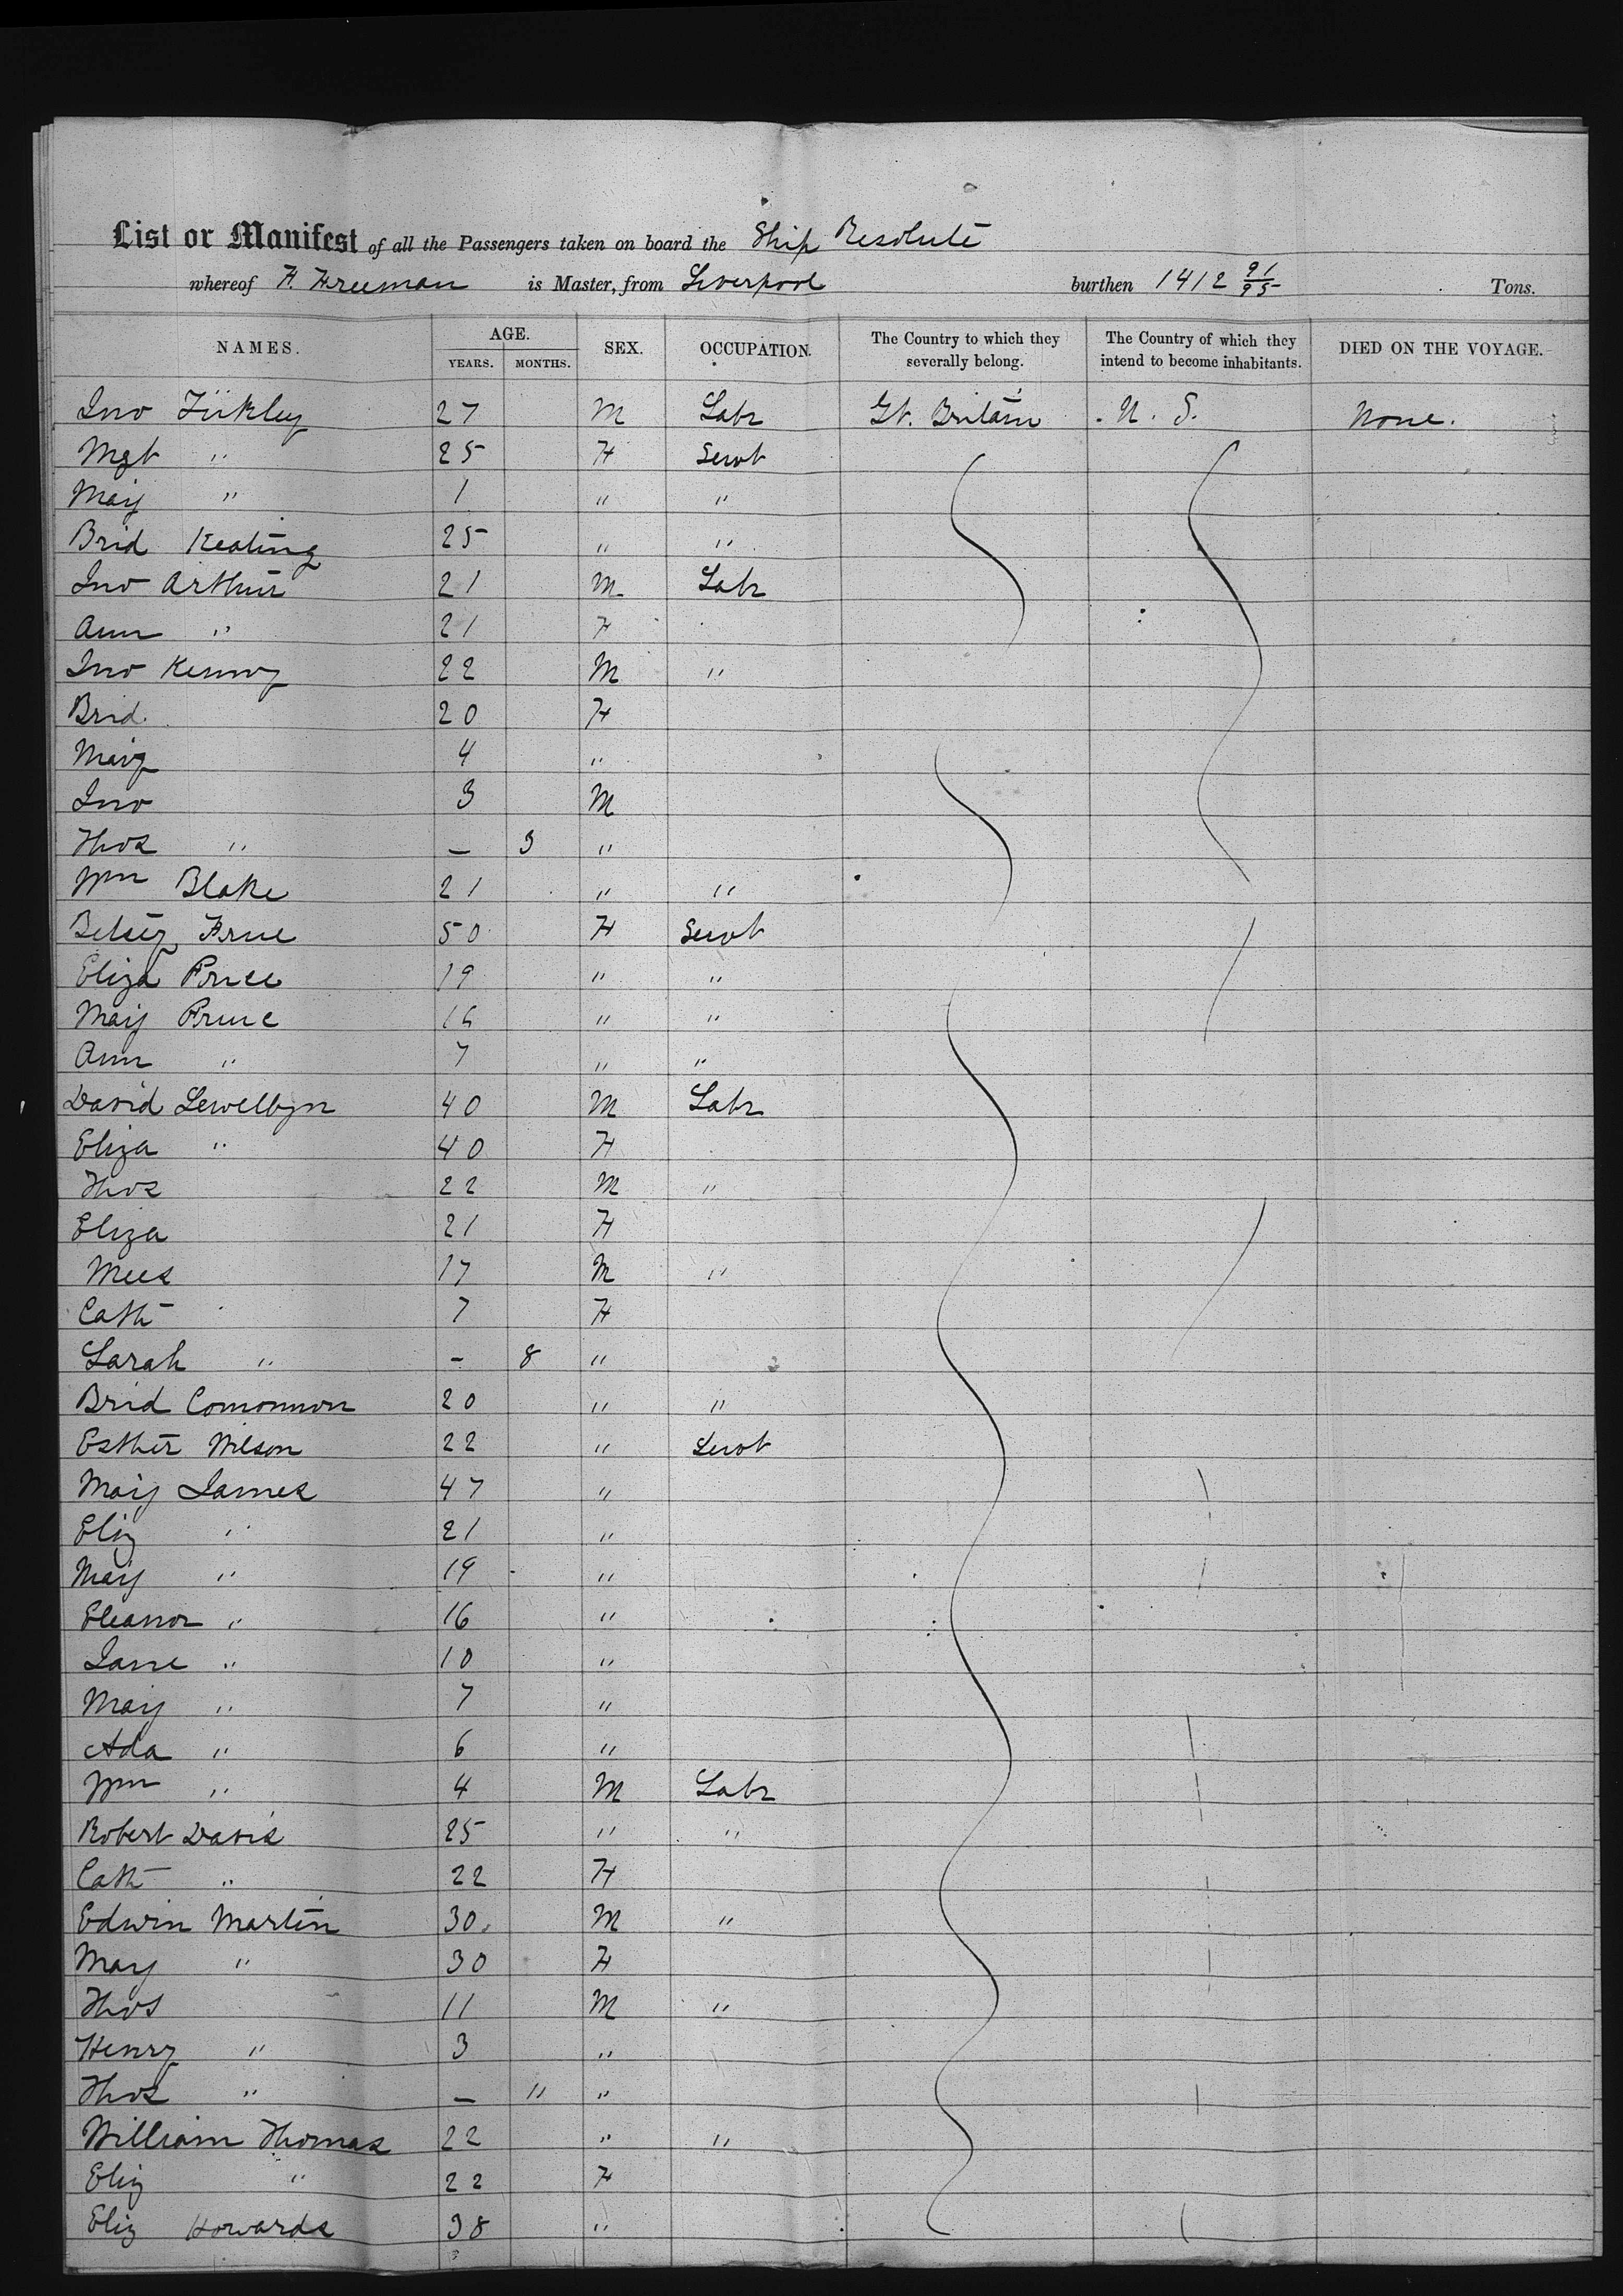 List or Manifest of all the Passengers taken on board the Ship Resolute
whereof F. Freeman is Master, from Liverpool burthen 1412 91/95 Tons.
NAMES. AGE. YEARS. MONTHS. SEX. OCCUPATION. The Country to which they severally belong. The Country of which they intend to become inhabitants. DIED ON THE VOYAGE.
Jno 27 M Labr Gt. Britain U. S. None.
Mgt " 25 F Servt
Mary " 1 " "
Brid Keating 25 " "
Jno Arthur 21 M Labr
Ann " 21 F
Jno Kenny 22 M "
Brid. 20 F
Mary 4 "
Jno 3 M
Thos " — 3 "
Wm Blake 21 " "
Betsey 50 F Servt
Eliza 19 " "
Mary 16 " "
Ann " 7 " "
David Lewellyn 40 M Labr
Eliza " 40 F
Thos 22 M "
Eliza 21 F
17 M "
Cath 7 F
Sarah " - 8 "
Brid 20 " "
Esther Wilson 22 " Servt
Mary James 47 "
Eliz " 21 "
Mary " 19 "
Eleanor " 16 "
Jane " 10 "
Mary " 7 "
Ada " 6 "
Wm " 4 M Labr
Robert Davis 25 " "
Cath " 22 F
Edwin Martin 30. M "
Mary " 30 F
Thos 11 M "
Henry " 3 "
Thos " — " "
William Thomas 22 " "
Eliz " 22 F
Eliz Howards 38 "